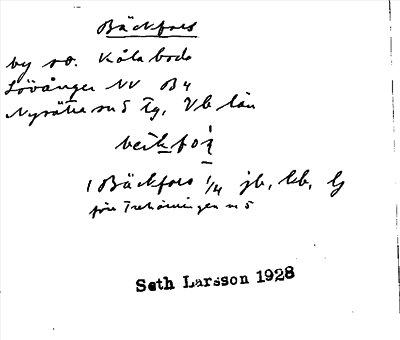 Bäckfors
by so. Kålaboda
Lövånger NV B4
Nysätra sn S tg, Vb län
bækfoṣ
1 Bäckfors 1/4 jb, kb, lj
före Trehörningen n5
Seth Larsson 1928